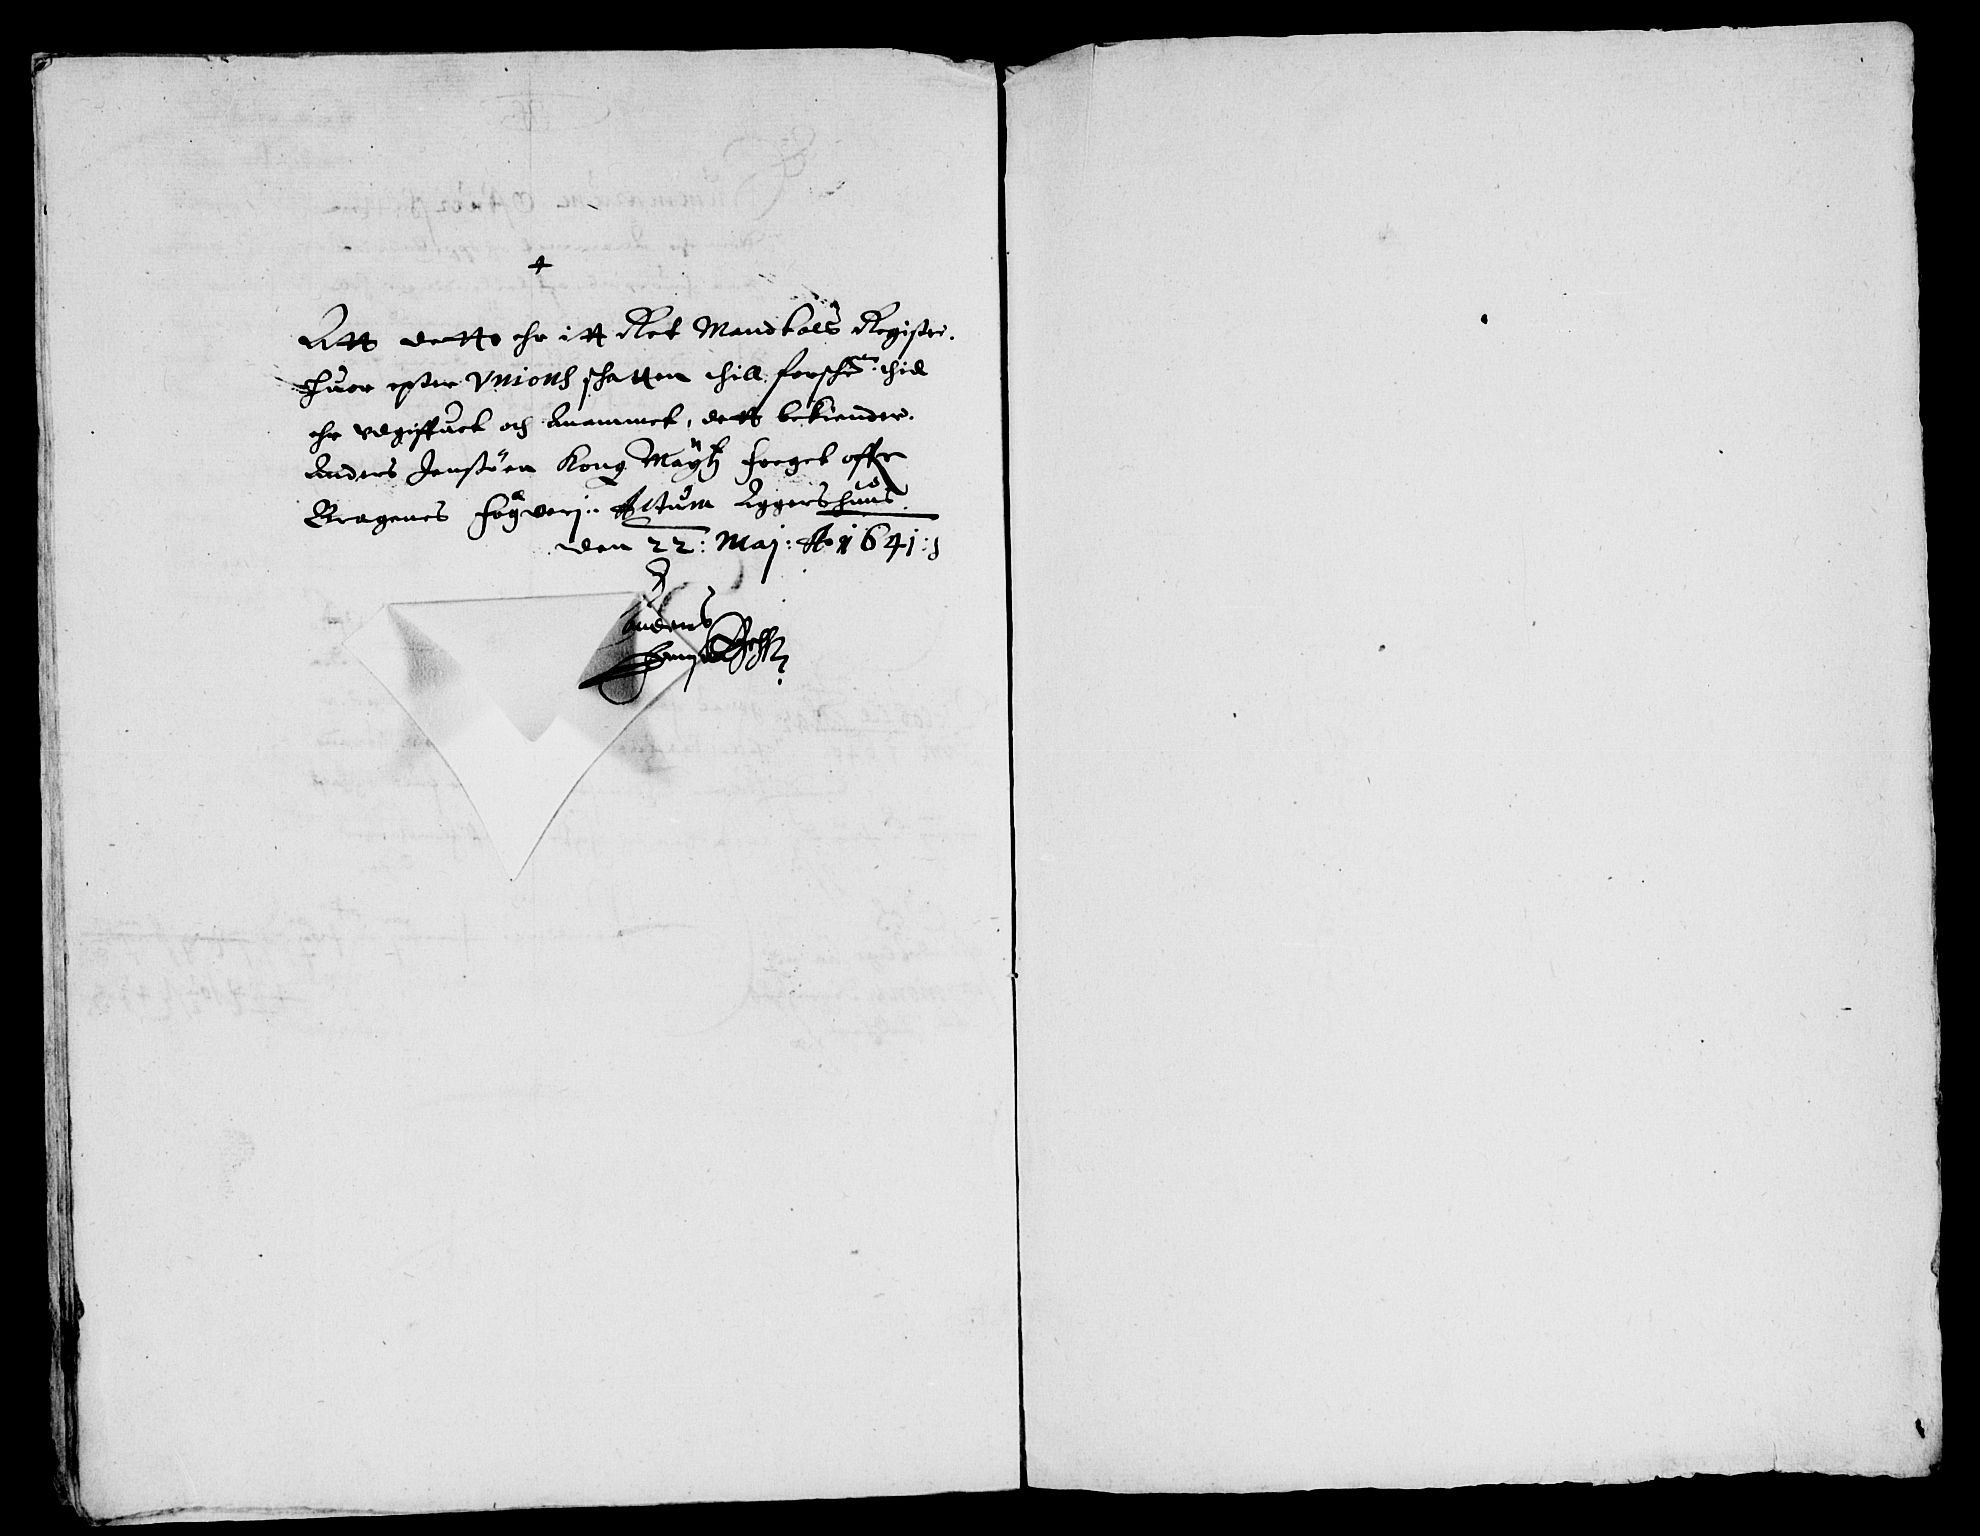 +
Att dette ehr itt Ret Mandtals Registe.
Huor epter Unions schatten thill forschr: thid
ehr udgiffuet och Anammet, dett bekiender.
Anders Jensøen Kong Maytz foeget offr
Bragenes fögderj. Actum Aggershuus.
den 22: Maj: Ao 1641:
Anders
Jensøen